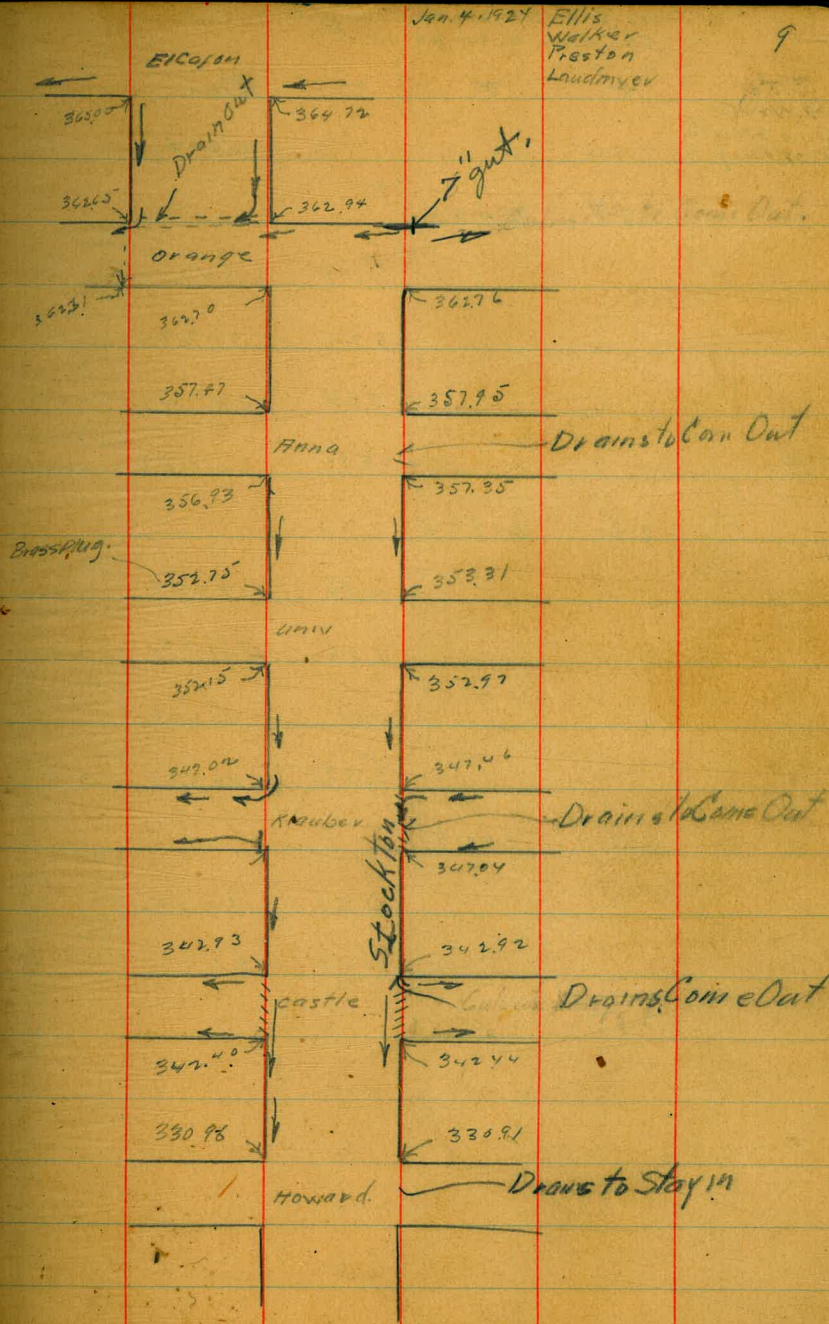 Jan. 4. 1924
Ellis
Walker
Preston
Laudmyer
9
El Cajon
365.00
364.72
Drain Out
7" gut.
362.65
362.94
Orange
362.31
362.70
362.76
357.47
357.95
Anna
Drains to Com Out
356.93
357.35
Brass Plug.
352.75
353.31
Univ
352.15
352.97
347.02
347.46
Klauber
Drains to Come Out
Stockton
347.04
342.93
342.92
Castle
Drains Come Out
342.40
342.44
330.98
330.91
Howard.
Drans to Stay in